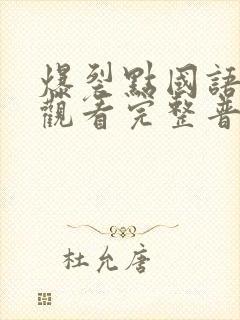 爆裂點國語
觀看完整普
杜允唐